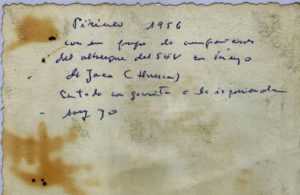 Pirineo 1956
con un grupo de compañeros
del albergue del SEU en
de Jaca (Huesca)
Sentado con gorrita a la izquierda
soy yo